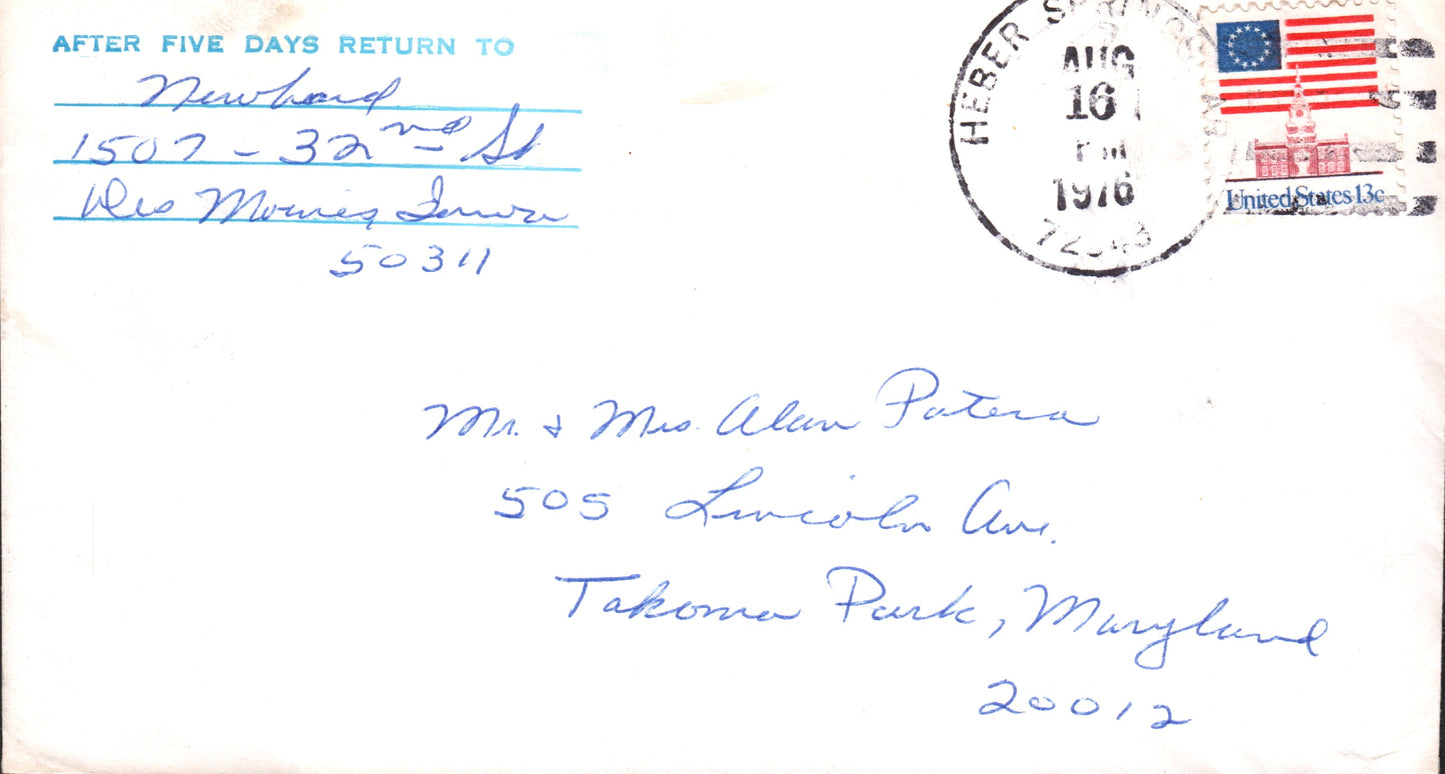 AFTER FIVE DAYS RETURN TO
Newhard
1507 - 32nd St
Des Moines, Iowa
50311
HEBER SPRINGS
AUG
16
PM
1976
United States 13c
Mr. & Mrs. Alan Patera
505 Lincoln Ave.
Takoma Park, Maryland
20012